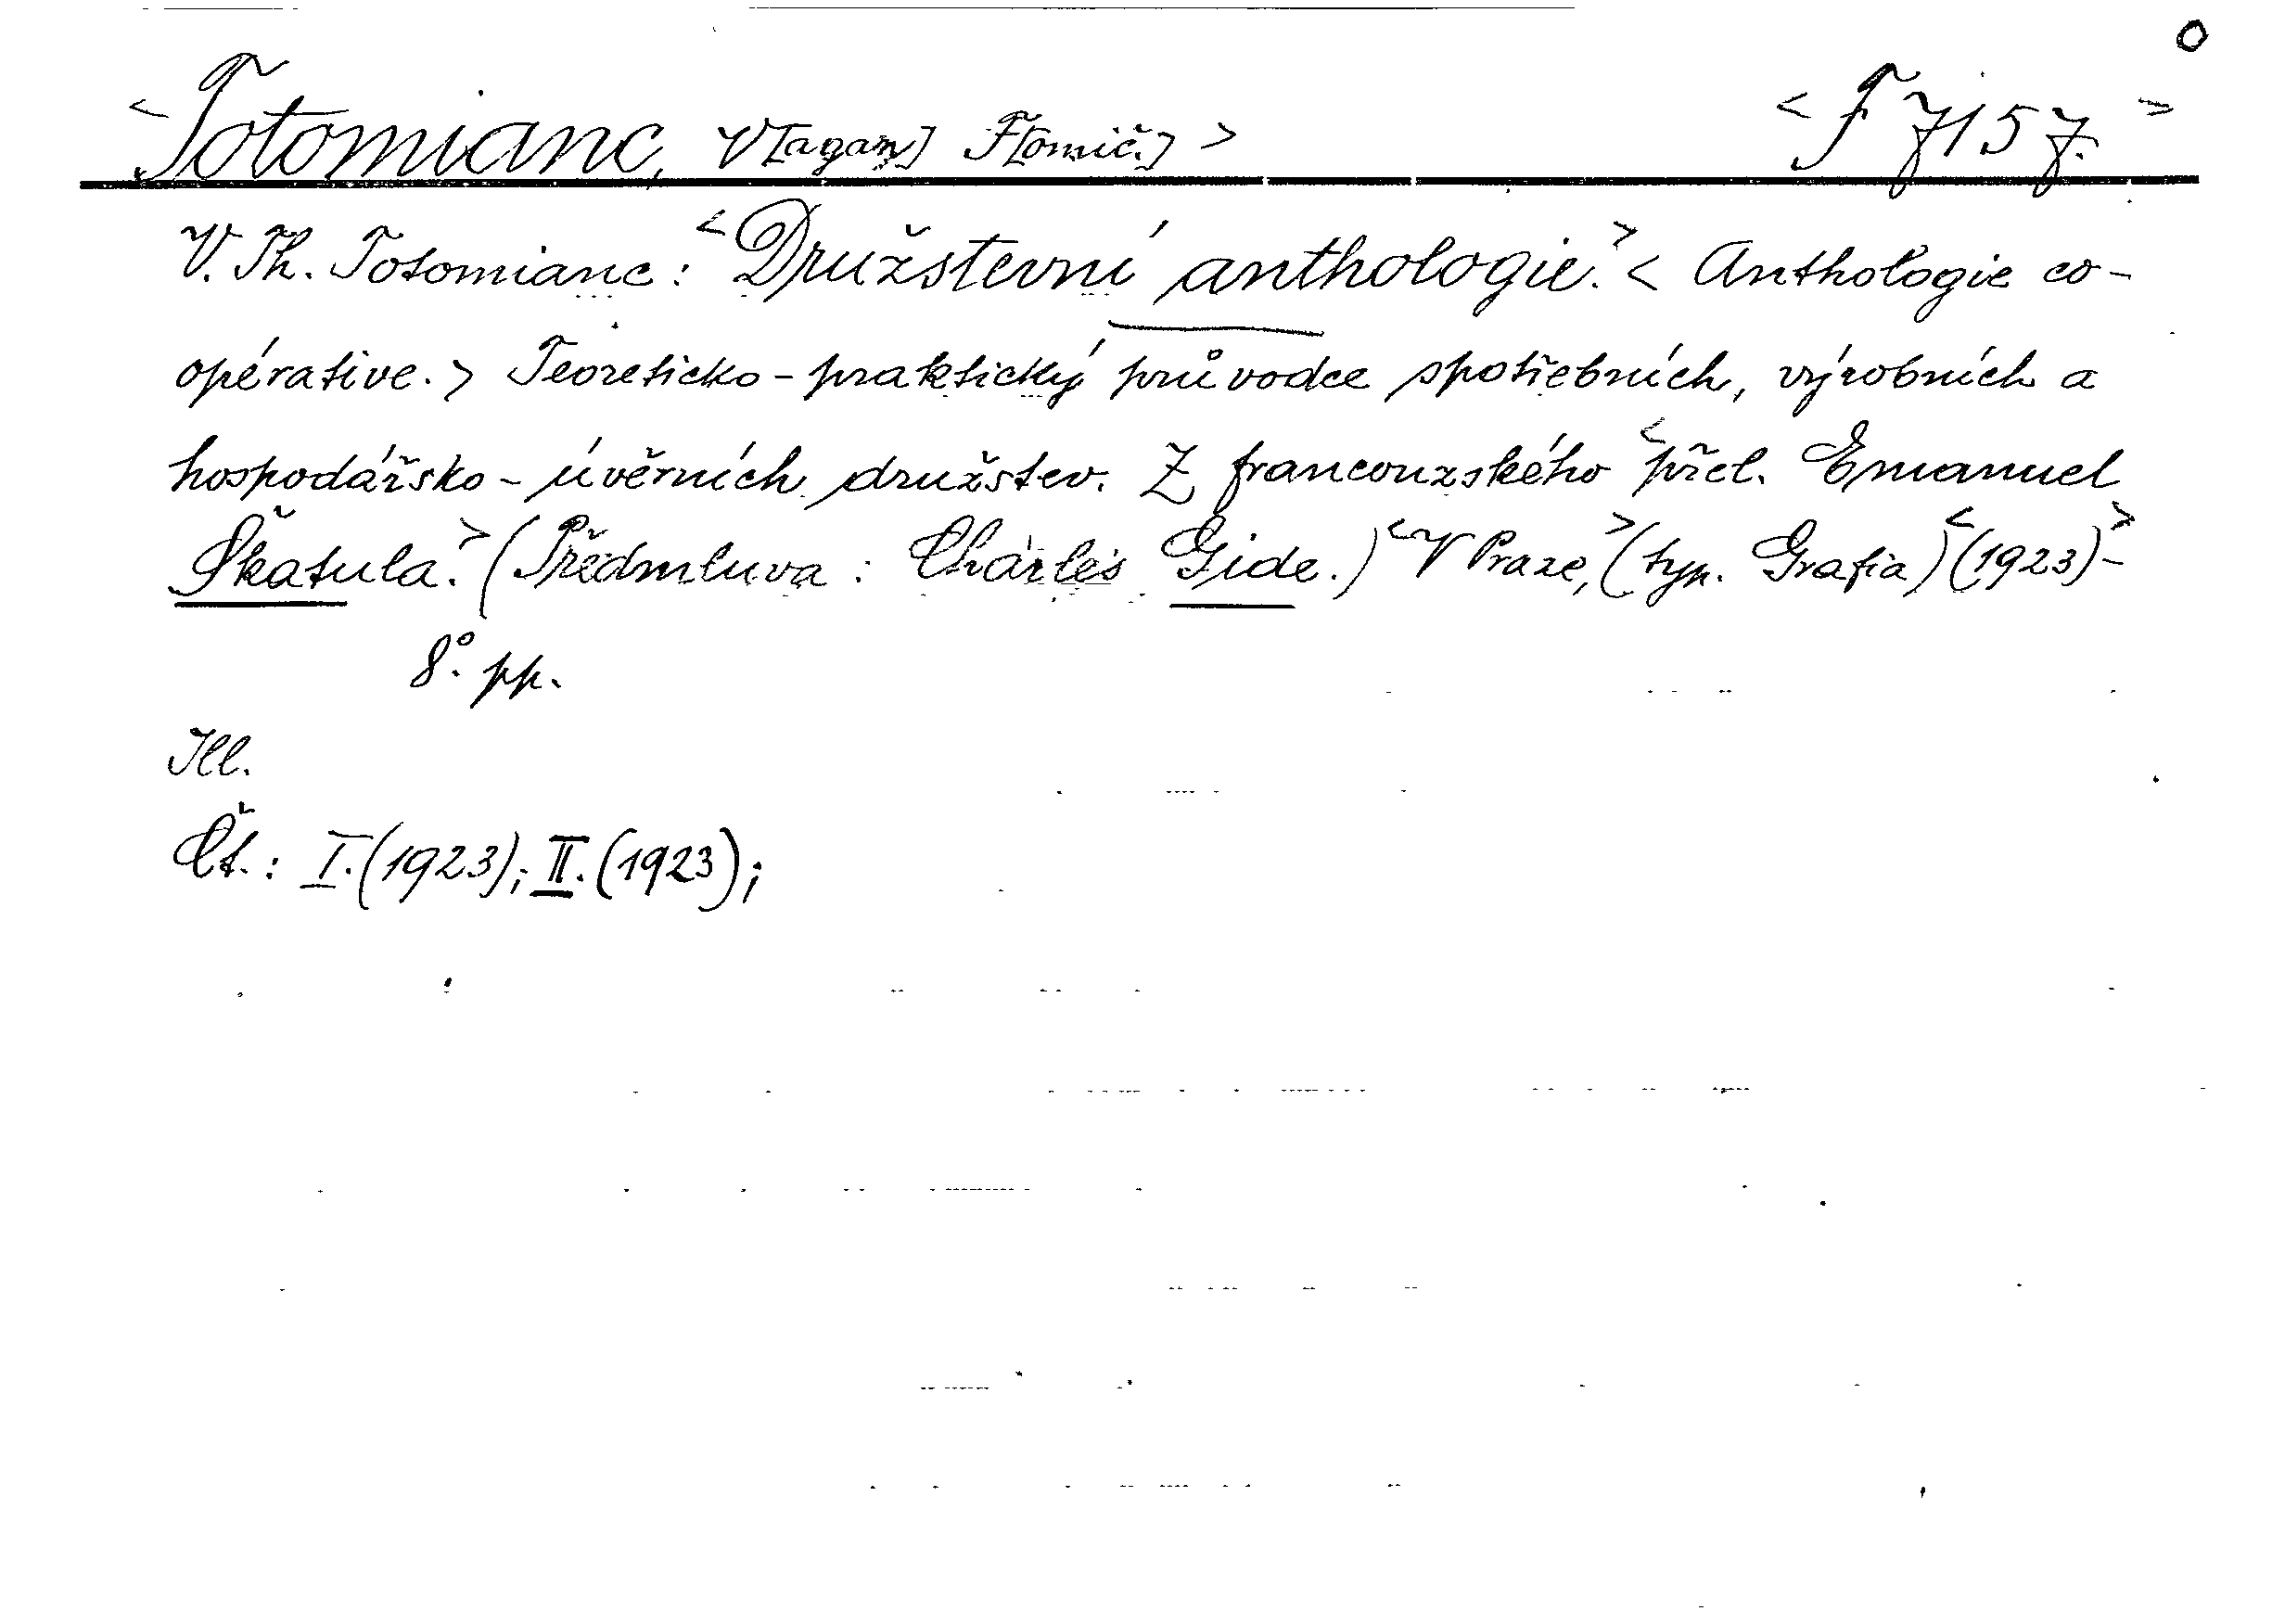 <Totomianc, V[agan] F[omič.]> <F 7157.>
V. Th. Totomianc: <Družstevní anthologie.> < Anthologie co-
opérative.> Teoreticko-praktický průvodce spotřebních, výrobních a
hospodářsko-úvěrních družstev. Z francouzského <přel. Emanuel
Škatula.> (Předmluva: Charles Gide.) <V Praze,> (typ. Grafia) <(1923)>-
8°. pp.
Ill.
Čt.: I. (1923); II. (1923);